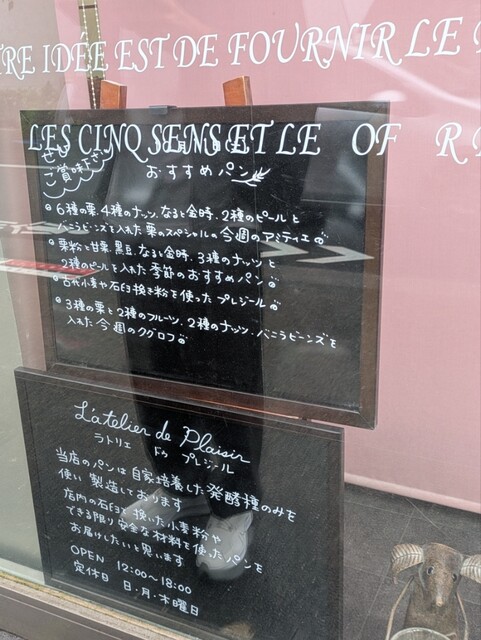 TRE IDÉE EST DE FOURNIR LE
LES CINQ SENS ET LE OF R
ぜひ
ご賞味下さい
おすすめパン
・6種の栗、4種のナッツ、なると金時、2種のピールと
バニラビーンズを入れた栗のスペシャルの今週のアミティエ
・栗粉と甘栗、黒豆、なると金時、3種のナッツと
2種のピールを入れた季節のおすすめパン
・古代小麦や石臼挽き粉を使ったプレジール
・3種の栗と2種のフルーツ、2種のナッツ、バニラビーンズを
入れた今週のクグロフ
L'atelier de Plaisir
ラトリエ ドゥ プレジール
当店のパンは自家培養した発酵種のみを
使い製造しております
店内の石臼で挽いた小麦粉や
できる限り安全な材料を使ったパンを
お届けしたいと思います
OPEN 12:00〜18:00
定休日 日・月・木曜日